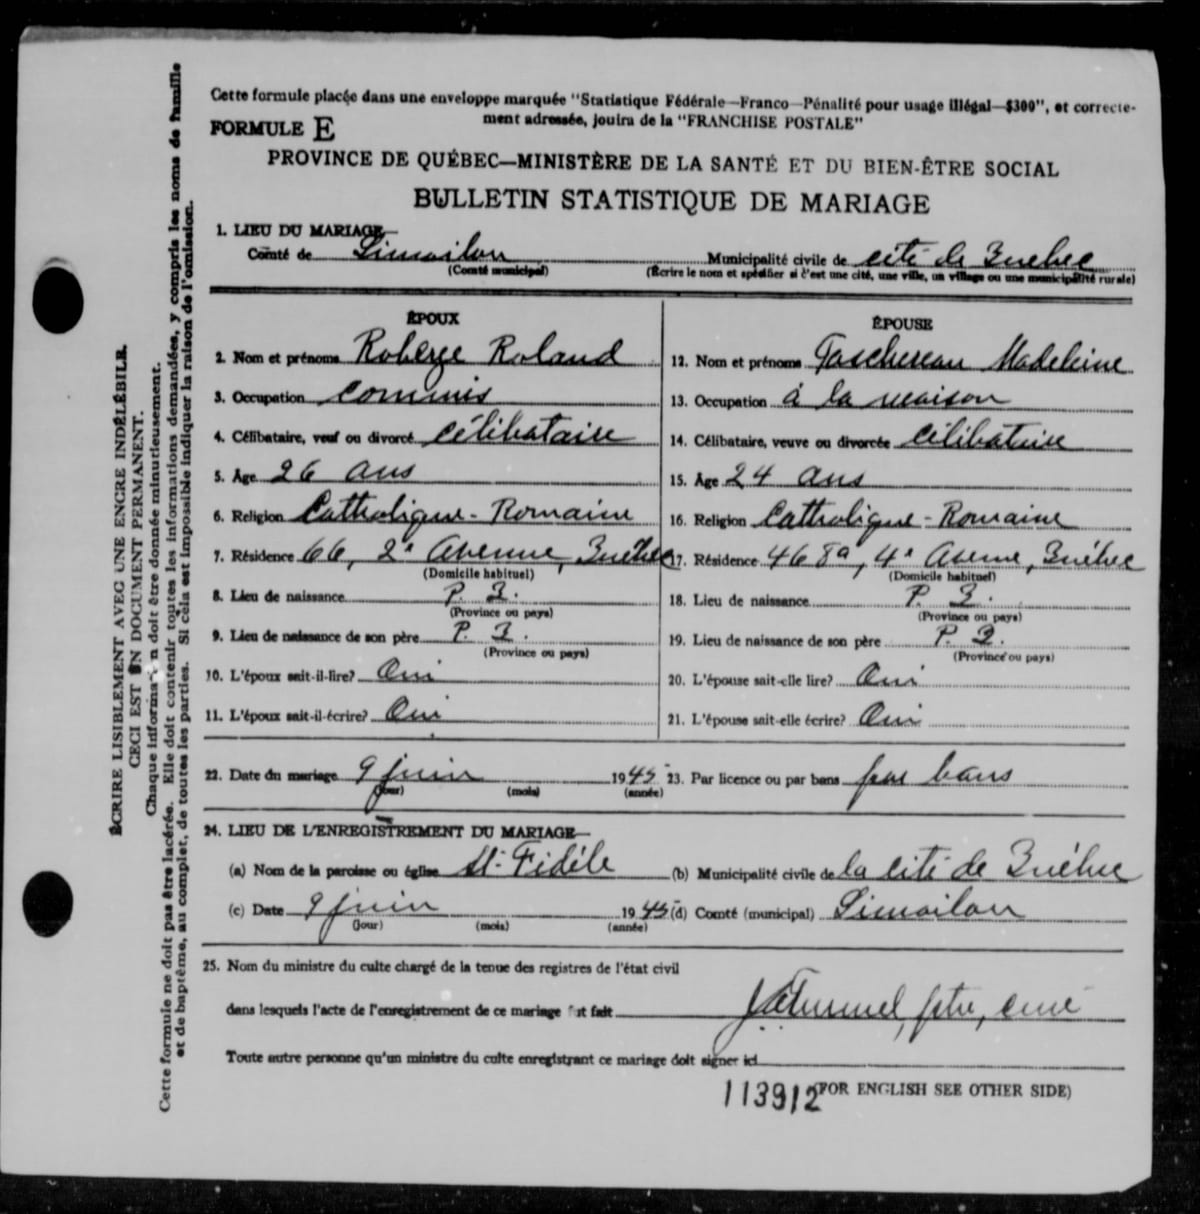 Cette formule placée dans une enveloppe marquée "Statistique Fédérale—Franco—Pénalité pour usage illégal—$300", et correcte-
ment adressée, jouira de la "FRANCHISE POSTALE"
FORMULE E
PROVINCE DE QUÉBEC—MINISTÈRE DE LA SANTÉ ET DU BIEN-ÊTRE SOCIAL
BULLETIN STATISTIQUE DE MARIAGE
1. LIEU DU MARIAGE—
Comté de Limoilou Municipalité civile de cité de Québec
(Comté municipal) (Écrire le nom et spécifier si c'est une cité, une ville, un village ou une municipalité rurale)
ÉPOUX
2. Nom et prénoms Roberge Roland
3. Occupation commis
4. Célibataire, veuf ou divorcé célibataire
5. Âge 26 ans
6. Religion Catholique-Romaine
7. Résidence 66, 2e Avenue, Québec
(Domicile habituel)
8. Lieu de naissance P. Q.
(Province ou pays)
9. Lieu de naissance de son père P. Q.
(Province ou pays)
10. L'époux sait-il-lire? Oui
11. L'époux sait-il-écrire? Oui
ÉPOUSE
12. Nom et prénoms Taschereau Madeleine
13. Occupation à la maison
14. Célibataire, veuve ou divorcée célibataire
15. Âge 24 ans
16. Religion Catholique-Romaine
17. Résidence 468a, 4e Avenue, Québec
(Domicile habituel)
18. Lieu de naissance P. Q.
(Province ou pays)
19. Lieu de naissance de son père P. Q.
(Province ou pays)
20. L'épouse sait-elle lire? Oui
21. L'épouse sait-elle écrire? Oui
22. Date du mariage 9 juin 1945 23. Par licence ou par bans par bans
(jour) (mois) (année)
24. LIEU DE L'ENREGISTREMENT DU MARIAGE—
(a) Nom de la paroisse ou église St-Fidèle (b) Municipalité civile de la cité de Québec
(c) Date 9 juin 1945 (d) Comté (municipal) Limoilou
(jour) (mois) (année)
25. Nom du ministre du culte chargé de la tenue des registres de l'état civil
dans lesquels l'acte de l'enregistrement de ce mariage est fait ptre, curé
Toute autre personne qu'un ministre du culte enregistrant ce mariage doit signer ici
113912 (FOR ENGLISH SEE OTHER SIDE)
ÉCRIRE LISIBLEMENT AVEC UNE ENCRE INDÉLÉBILE.
CECI EST UN DOCUMENT PERMANENT.
Chaque information doit être donnée minutieusement.
Cette formule ne doit pas être lacérée. Elle doit contenir toutes les informations demandées, y compris les noms de famille
et de baptême, au complet, de toutes les parties. Si cela est impossible indiquer la raison de l'omission.